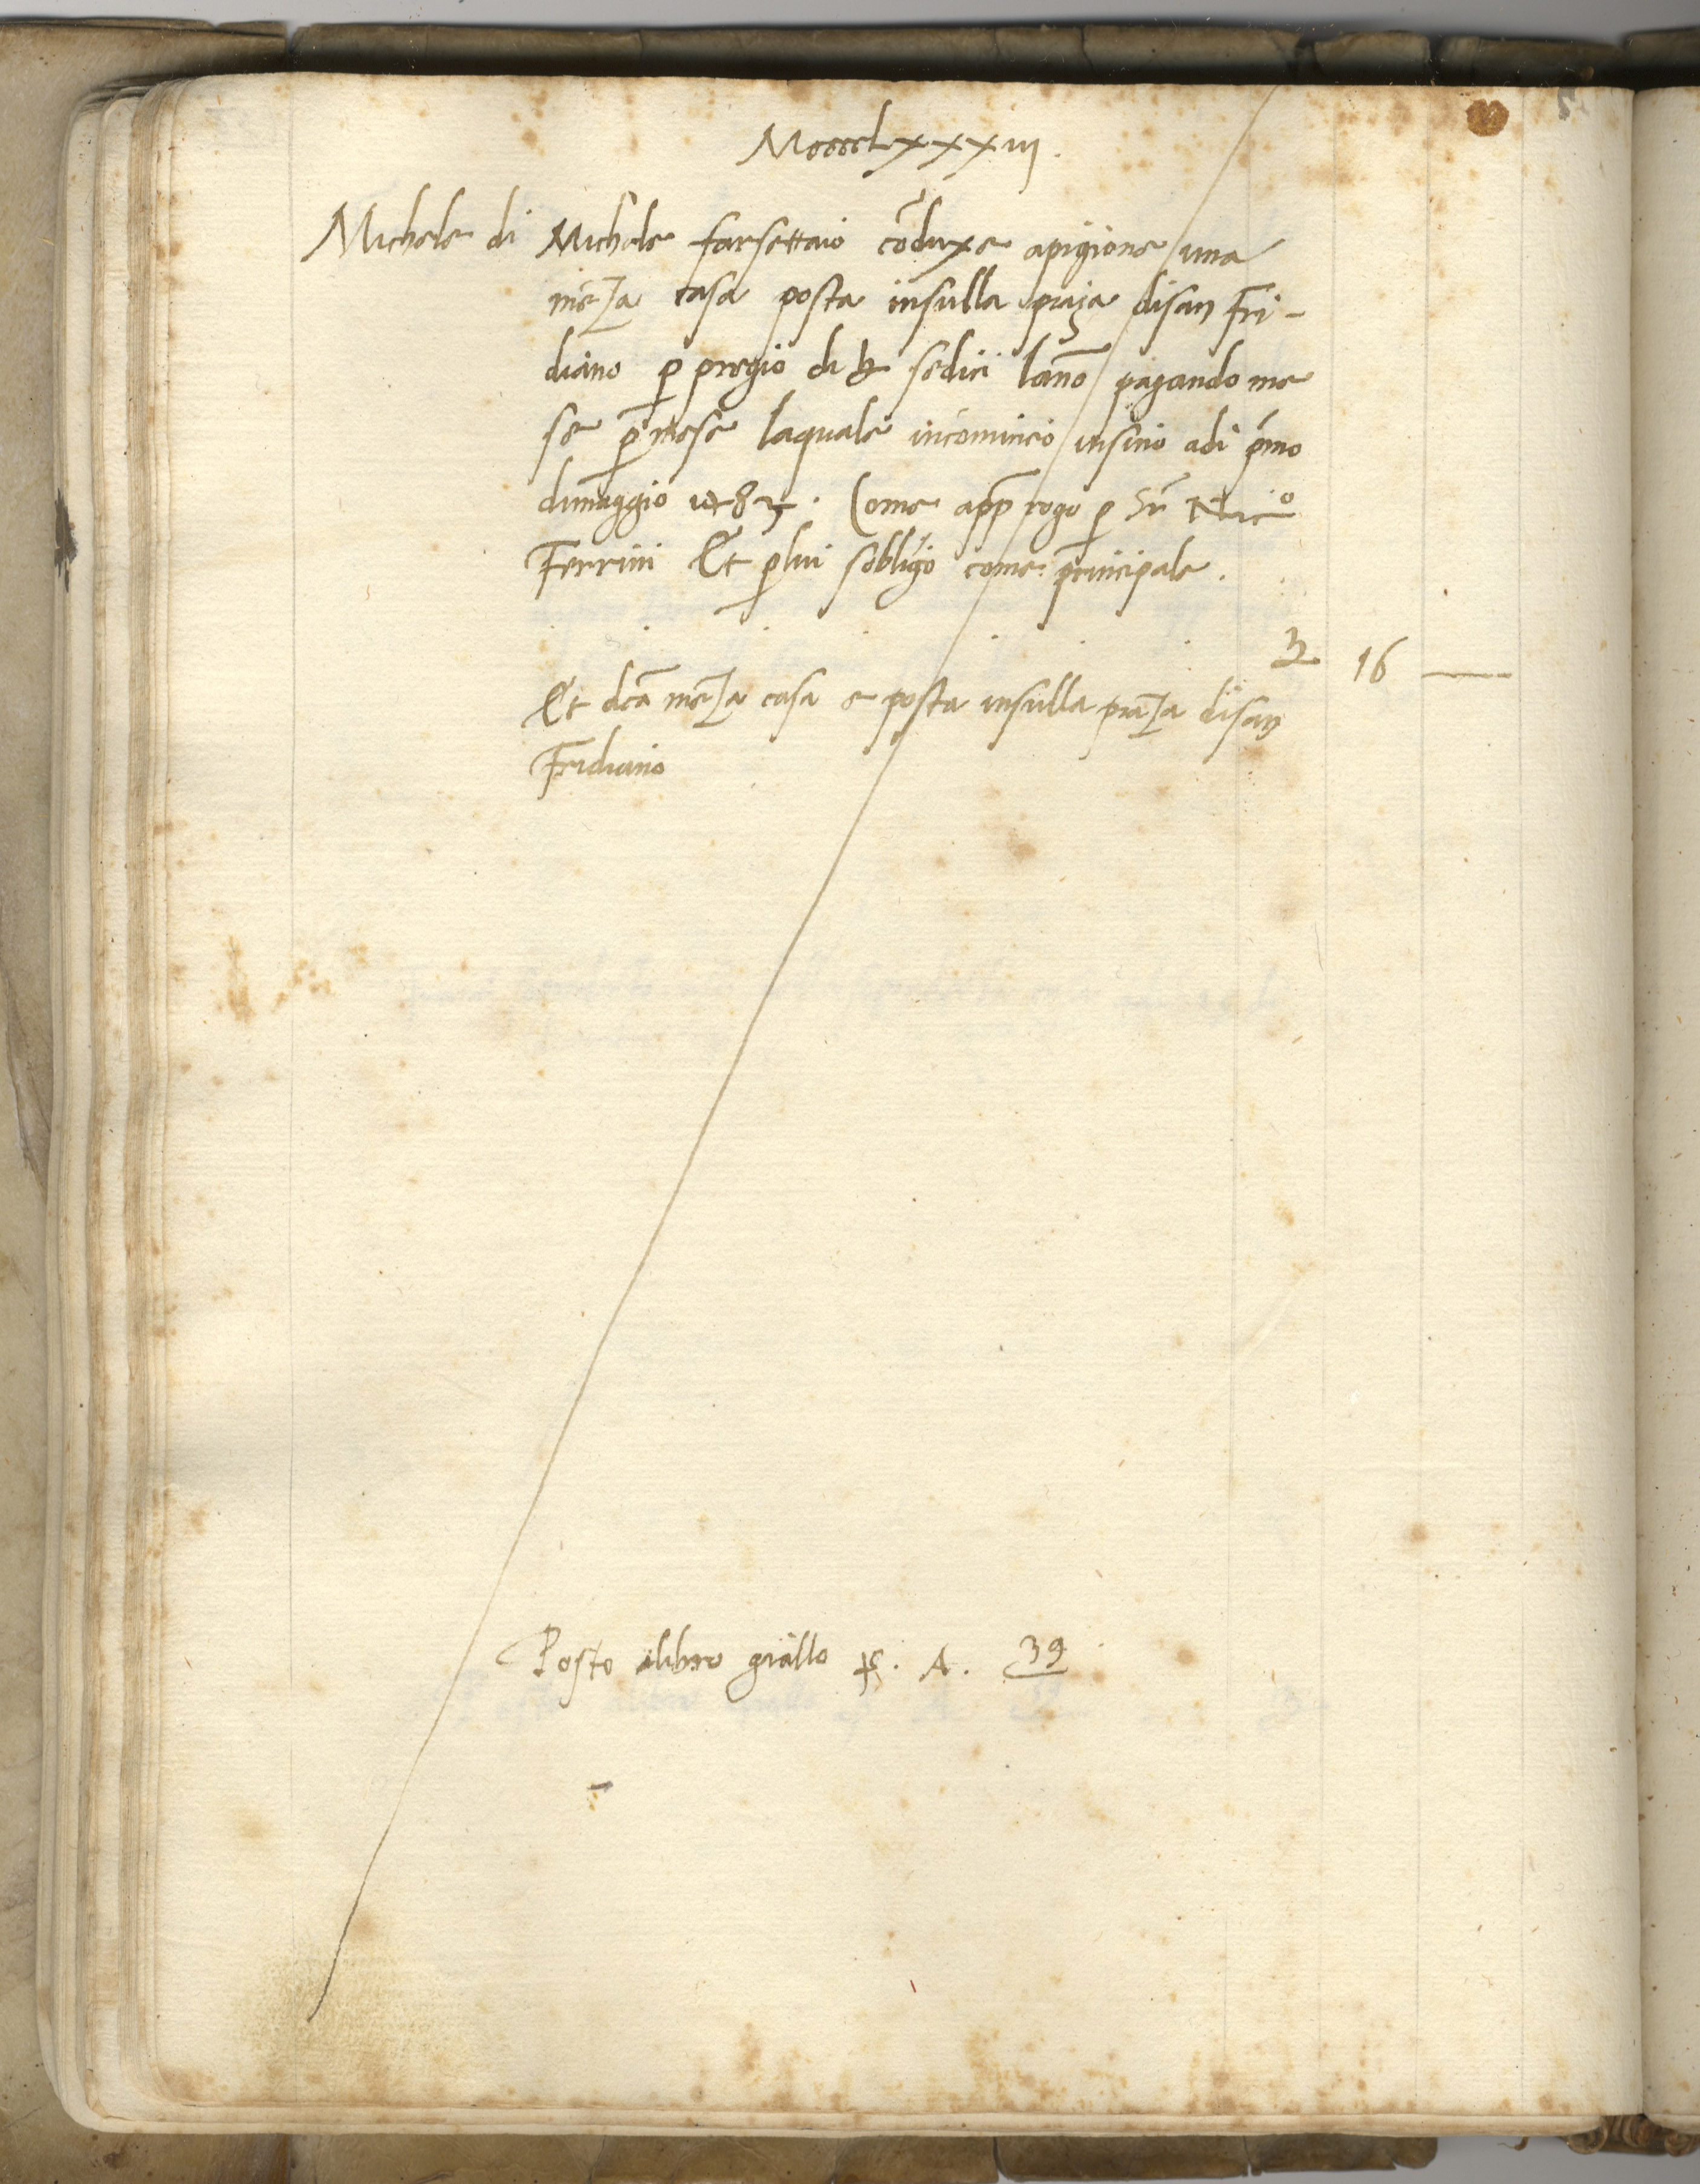 MccccLxxxiij.
Michele di Michele farsettaio cōduxe apigione una
meza casa posta insulla piaza disan Fri-
diano p pregio di sedici lanno pagando me
se p mese laquale incomincio insino adi pmo
dimaggio Come app rogo p
Ferrini Et plui sobligo come principale.
16
Et dca meza casa e posta insulla piaza disan
Fridiano
Posto alibro giallo A. 39